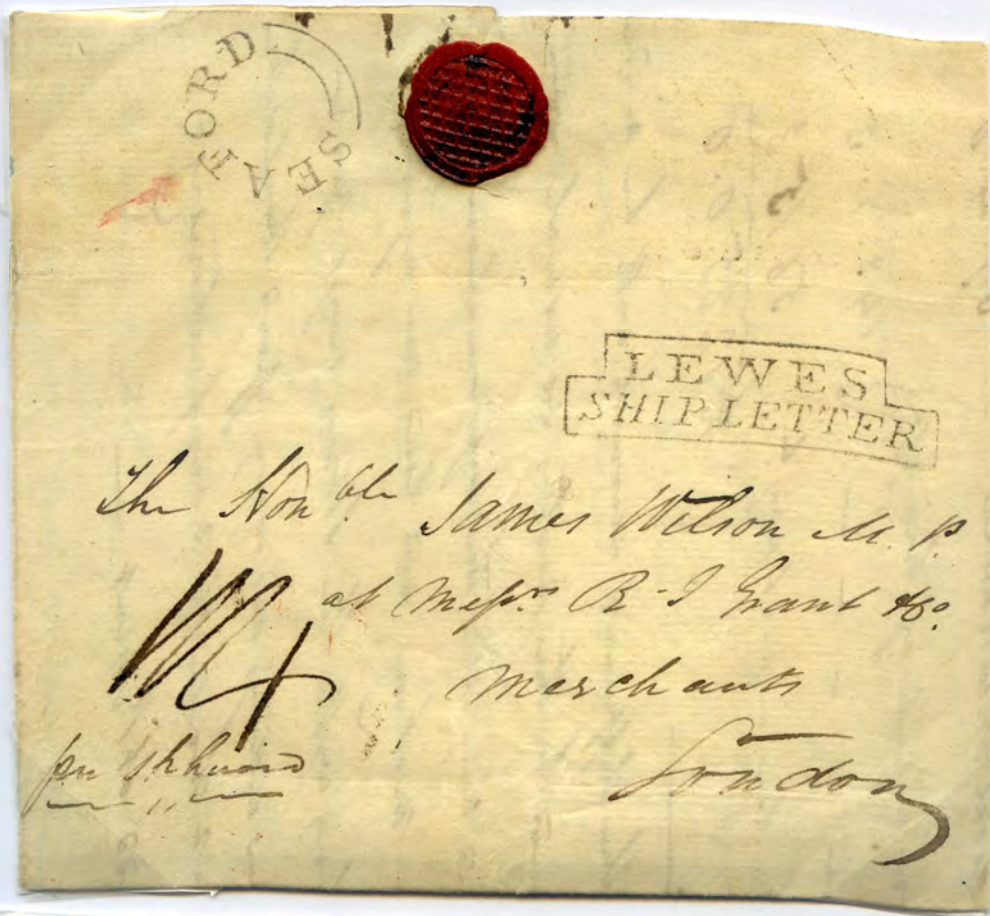 SEAFORD
LEWES
SHIP LETTER
The Honble James Wilson M. P.
at Messrs R. I Grant & Co.
Merchants
London
per